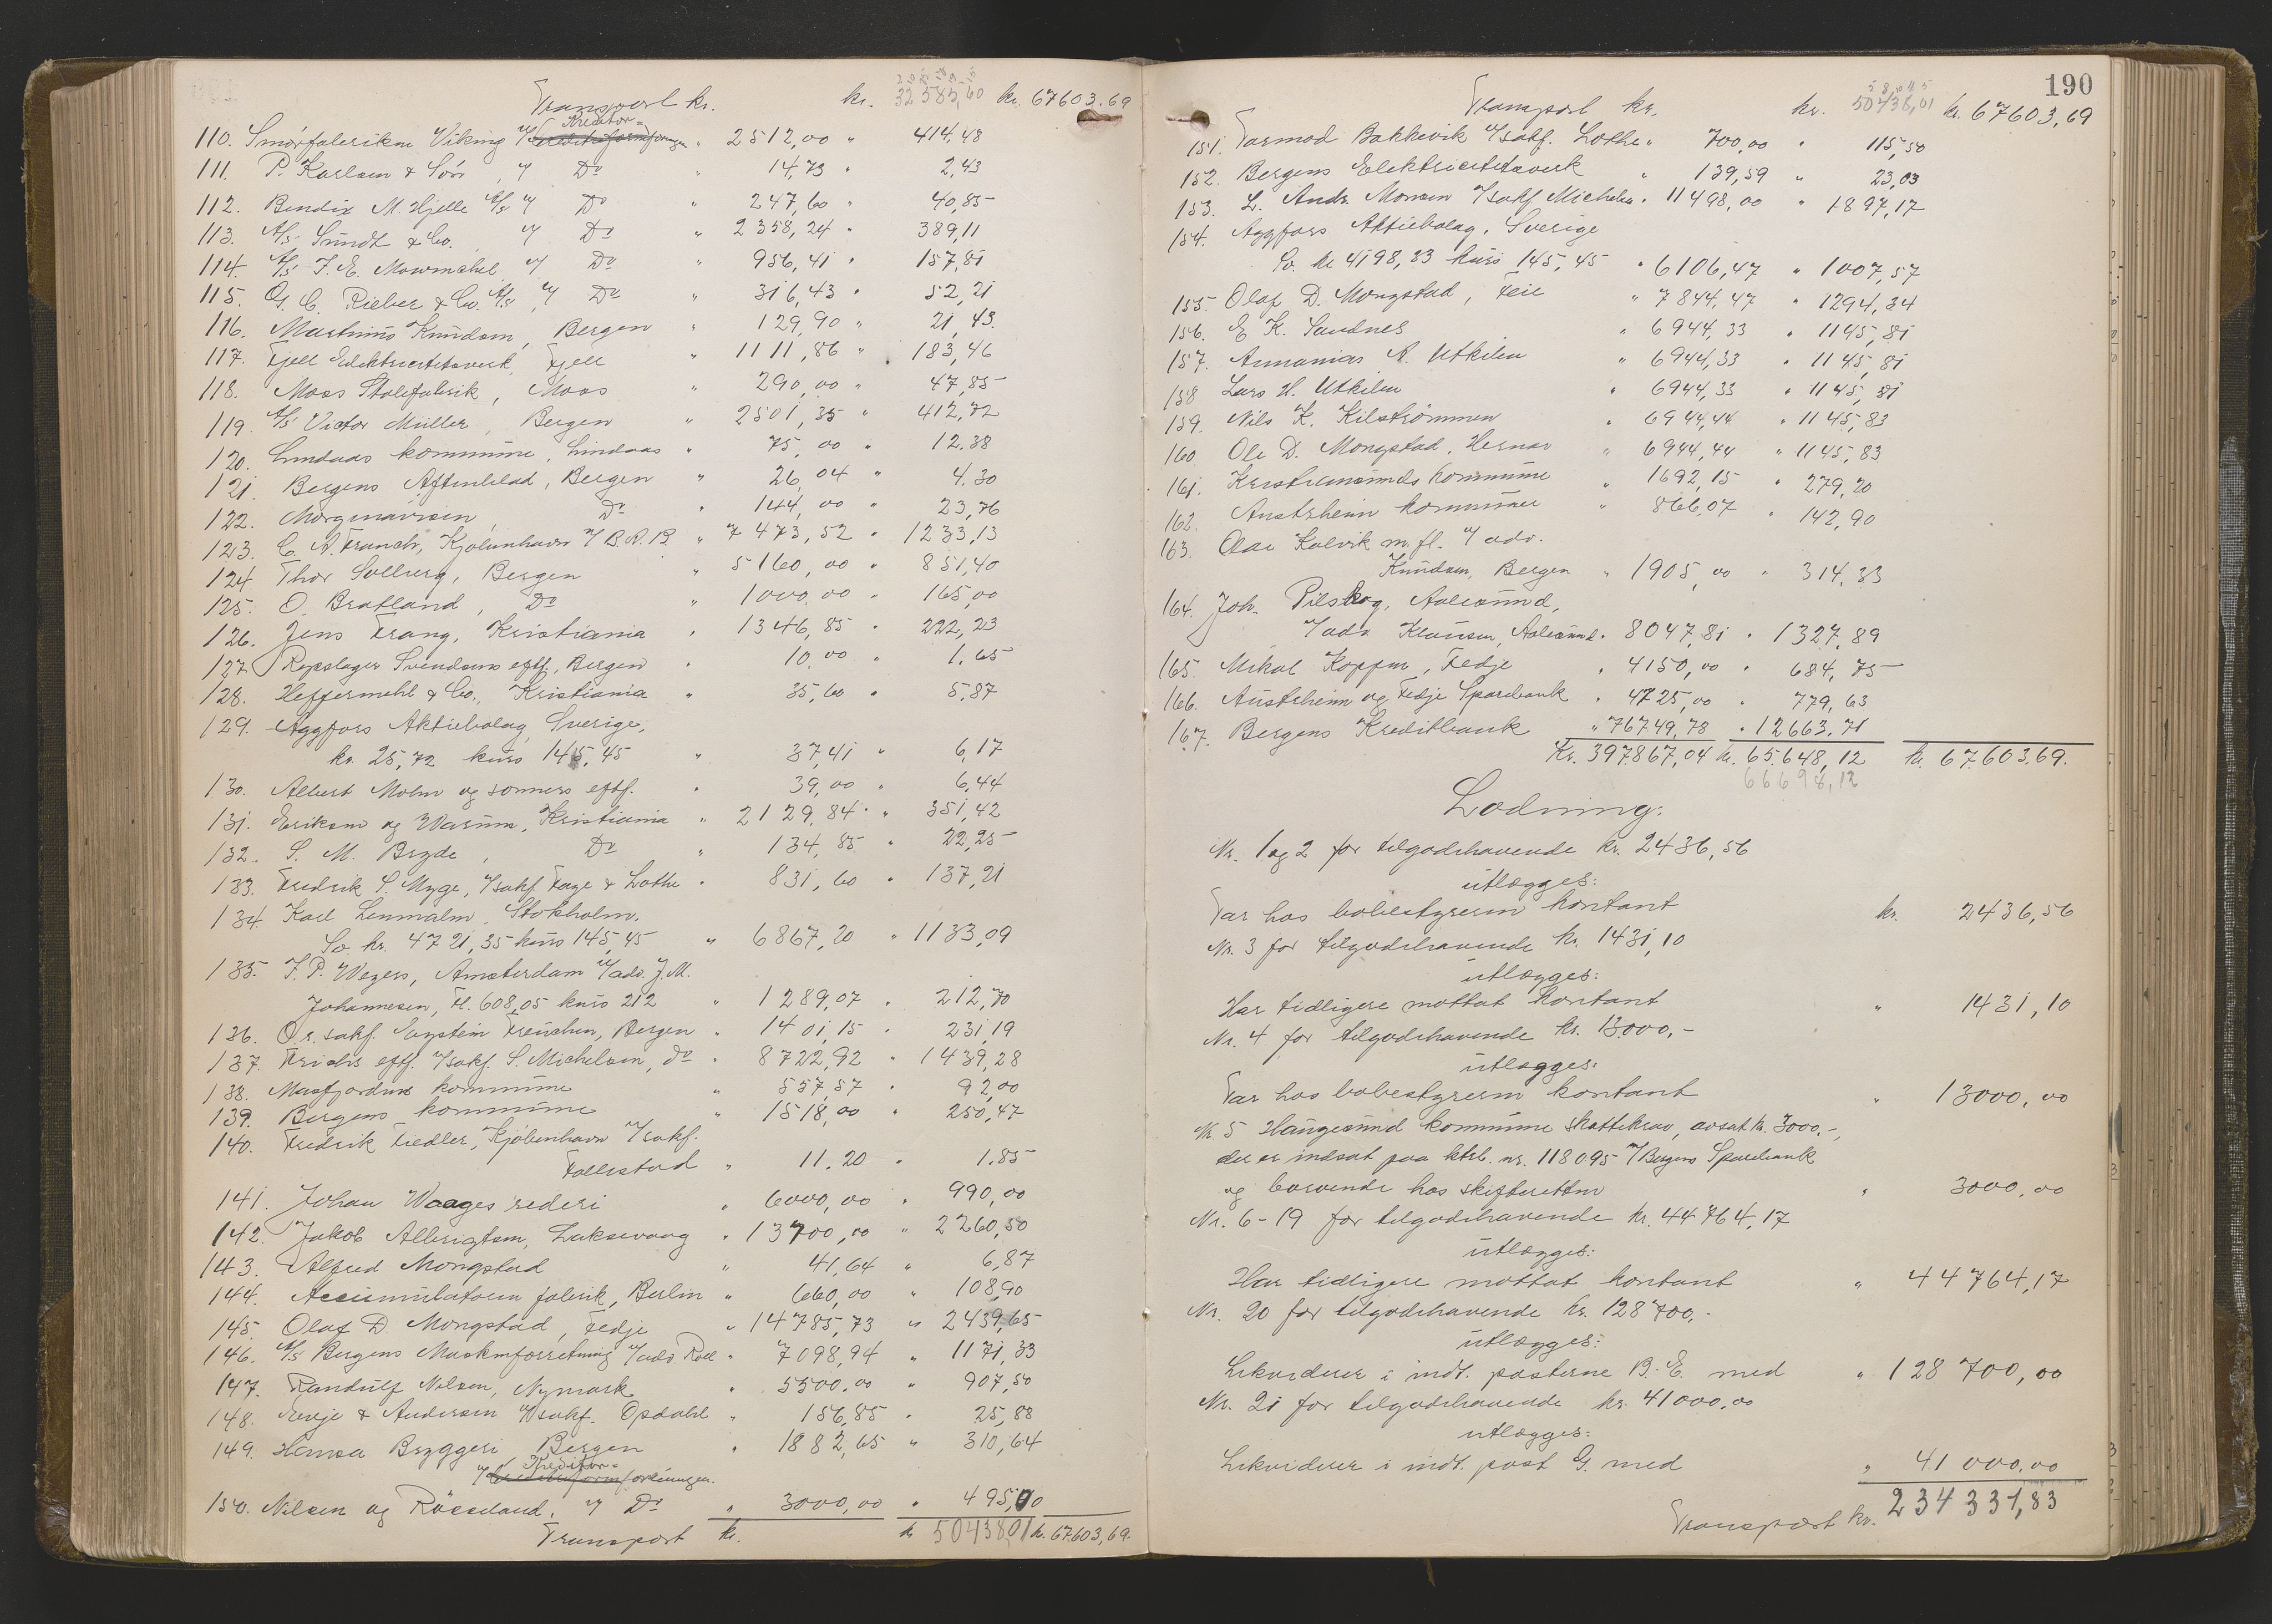 Transport kr. kr. 32 585,60 kr. 67603.69
Kreditor=
110. Smørfabriken Viking v/ Kreditreformforeningen " 2512,00 " 414,48
111. P. Karlsen & Søn, v/ Do " 14,73 " 2,43
112. Bendix M. Hjelle A/s v/ Do " 247,60 " 40,85
113. A/s Sundt & Co. v/ Do " 2358,24 " 389,11
114. A/s F. E. Mowinckel v/ Do " 956,41 " 157,81
115. G. C. Rieber & Co. A/s, v/ Do " 316,43 " 52,21
116. Martinus Knudsen, Bergen " 129,90 " 21,43
117. Fjell Elektricitetsverk, Fjell " 1111,86 " 183,46
118. Moss Stolefabrik, Moss " 290,00 " 47,85
119. A/s Victor Müller, Bergen " 2501,35 " 412,72
120. Lindaas kommune, Lindaas " 75,00 " 12.38
121. Bergens Aftenblad, Bergen " 26,04 " 4.30
122. Morgenavisen, Do " 144,00 " 23,76
123. C. A. Franch, Kjøbenhavn v/ B. A. B. " 7473,52 " 1233,13
124. Thor Solberg, Bergen " 5160,00 " 851,40
125. O. Bratland, Do " 1000,00 " 165,00
126. Jens Frang, Kristiania " 1346,85 " 222,23
127. Repslager Svendsens eftf., Bergen " 10,00 " 1.65
128. Heffermehl & Co., Kristiania " 35,60 " 5,87
129. Aggfors Aktiebolag Sverige,
kr. 25,72 kurs 145,45 " 37,41 " 6,17
130. Albert Molm og sønners eftf. " 39,00 " 6,44
131. Eriksen og Warum, Kristiania " 2129,84 " 351,42
132. S. M. Bryde, Do " 134,85 " 22,25
133. Fredrik S. Myge, v/sakf. Faye & Lothe " 831,60 " 137,21
134. Karl Lenmalm, Stokholm.
Sv. kr. 4721,35 kurs 145,45 " 6867,20 " 1133,09
135. F. P. Wezers, Amsterdam v/adv. J. M.
Johannesen, Fl. 608,05 kurs 212 " 1289,07 " 212,70
136. O.r.sakf. Eystein Freuchen, Bergen " 1401,15 " 231,19
137. Friches eftf. v/sakf. S. Michelsen, do " 8722,92 " 1439,28
138. Masfjordens kommune " 557,57 " 92,00
139. Bergens kommune " 1518,00 " 250,47
140. Fredrik Fiedler, Kjøbenhavn v/sakf.
Follestad " 11.20 " 1.85
141. Johan Waages rederi " 6000,00 " 990,00
142. Jakob Albrigtsen, Laksevaag " 13700,00 " 2260,50
143. Alfred Mongstad " 41,64 " 6,87
144. Accumulatoren fabrik, Berlin " 660,00 " 108,90
145. Olaf D. Mongstad, Fedje " 14785,73 " 2439,65
146. A/s Bergens Maskinforretning v/adv. Roll " 7098,94 " 1171,33
147. Randulf Nilsen, Nymark " 5500,00 " 907,50
148. Eveje & Andersen v/sakf. Opdahl " 156,85 " 25,88
149. Hansa Bryggeri, Bergen " 1882,65 " 310,64
Kreditor=
v/ Kreditreformforeningen.
150. Nilsen og Rösseland, v/ Do " 3000,00 " 495,00
Transport kr. kr. 50438,01 kr. 67603,69.
190
Transport kr. kr. 50438,01 kr. 67603,69
151. Tarmod Bakkevik v/sakf. Lothe " 700,00 " 115,50
152. Bergens Elektricitetsverk " 139,59 " 23,03
153. L. Andr. Monsen v/sakf Michelsen " 11498,00 " 1897,17
154. Aggfors Aktiebolag, Sverige
Sv. kr. 4198,33 kurs 145,45 " 6106,47 " 1007,57
155. Olaf D. Mongstad, Feie " 7844,47 " 1294,34
156. E. K. Sandnes " 6944,33 " 1145,81
157. Annanias A. Utkilen " 6944,33 " 1145,81
158 Lars H. Utkilen " 6944,33 " 1145,81
159. Nils K. Kilstrømmen " 6944,44 " 1145,83
160. Ole D. Mongstad, Hernar " 6944,44 " 1145,83
161. Kristiansunds kommune " 1692,15 " 279,20
162. Austrheim kommune " 866,07 " 142,90
163. Olai Kalvik m. fl. v/ adv.
Knudsen, Bergen " 1905,00 " 314,33
164. Joh. Pilskog, Aalesund,
v/adv Klausen, Aalesund " 8047,81 " 1327,89
165. Mikal Koppen, Fedje " 4150,00 " 684,75
166. Austrheim og Fedje Sparebank " 4725,00 " 779,63
167. Bergens Kreditbank " 76749,78 " 12663,71
Kr. 397867,04 kr. 65.648,12 kr. 67603.69.
66698,12
Lodning:
Nr. 1 og 2 for tilgodehavende kr. 2436,56
utlægges:
Tar hos bobestyreren kontant kr. 2436,56
Nr. 3 for tilgodehavende kr. 1431,10
utlægges:
Har tidligere mottat kontant " 1431,10
Nr. 4 for tilgodehavende kr. 13000,-
utlægges:
Tar hos bobestyreren kontant " 13000,00
Nr. 5 Haugesund kommune skattekrav, avsat kr. 3000.-,
der er indsat paa ktrb. nr. 118095 i/ Bergens Sparebank
og beroende hos skifteretten " 3000,00
Nr. 6-19 for tilgodehavende kr. 44764,17
utlægges:
Har tidligere mottat kontant " 44764,17
Nr. 20 for tilgodehavende kr. 128700,-
utlægges:
Likviderer i indt. posterne B.-E. med " 128 700,00
Nr. 21 for tilgodehavende kr. 41000,00
utlægges:
Likviderer i indt. post G. med " 41 000,00
Transport kr. 234 331,83